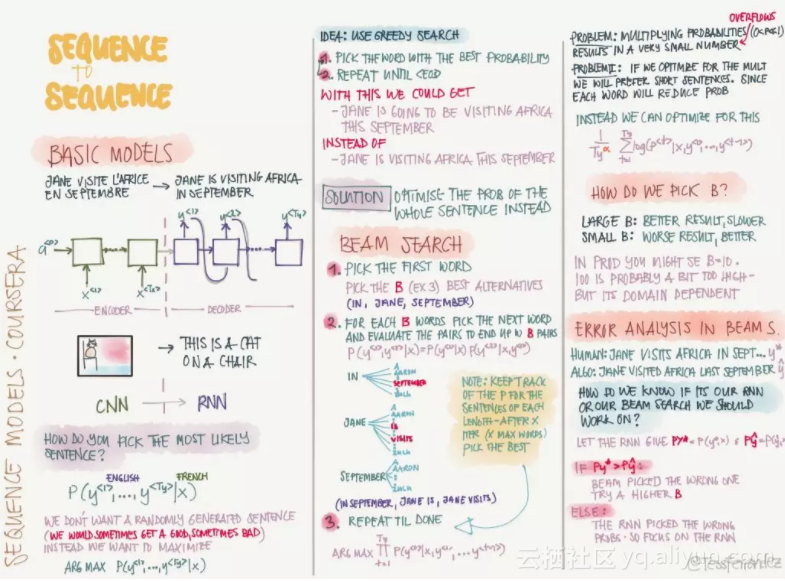 SEQUENCE
to
SEQUENCE
BASIC MODELS
JANE VISITE L'AFRICE
EN SEPTEMBRE → JANE IS VISITING AFRICA
IN SEPTEMBER
a<0>
x<1>
x<Tx>
y<1>
y<2>
y<Ty>
ENCODER
DECODER
→ THIS IS A CAT
ON A CHAIR
CNN → RNN
HOW DO YOU PICK THE MOST LIKELY
SENTENCE?
ENGLISH FRENCH
P(y<1>,...,y<Ty>|x)
WE DON'T WANT A RANDOMLY GENERATED SENTENCE
(WE WOULD SOMETIMES GET A GOOD, SOMETIMES BAD)
INSTEAD WE WANT TO MAXIMIZE
ARG MAX P(y<1>,...,y<Ty>|x)
SEQUENCE MODELS · COURSERA
IDEA: USE GREEDY SEARCH
1. PICK THE WORD WITH THE BEST PROBABILITY
2. REPEAT UNTIL <EOD
WITH THIS WE COULD GET
- JANE IS GOING TO BE VISITING AFRICA
THIS SEPTEMBER
INSTEAD OF
- JANE IS VISITING AFRICA THIS SEPTEMBER
SOLUTION OPTIMISE THE PROB OF THE
WHOLE SENTENCE INSTEAD
BEAM SEARCH
1. PICK THE FIRST WORD
PICK THE B (EX 3) BEST ALTERNATIVES
(IN, JANE, SEPTEMBER)
2. FOR EACH B WORDS PICK THE NEXT WORD
AND EVALUATE THE PAIRS TO END UP W B PAIRS
P(y<1>,y<2>|x)=P(y<1>|x) P(y<2>|x,y<1>)
IN
A
AARON
SEPTEMBER
ZULU
JANE
A
AARON
IS
VISITS
ZULU
SEPTEMBER
A
AARON
ZULU
NOTE: KEEP TRACK
OF THE P FOR THE
SENTENCES OF EACH
LENGTH - AFTER X
ITER (X MAX WORDS)
PICK THE BEST
(IN SEPTEMBER, JANE IS, JANE VISITS)
3. REPEAT TIL DONE
ARG MAX ∏ Ty t=1 P(y<t>|x,y<1>,...y<t-1>)
OVERFLOWS
PROBLEM: MULTIPLYING PROBABILITIES (0<P<<1)
RESULTS IN A VERY SMALL NUMBER
PROBLEM II: IF WE OPTIMIZE FOR THE MULT
WE WILL PREFER SHORT SENTENCES. SINCE
EACH WORD WILL REDUCE PROB
INSTEAD WE CAN OPTIMIZE FOR THIS
1/Ty^α ∑ Ty t=1 log(P(y<t>|x,y<1>,...,y<t-1>)
HOW DO WE PICK B?
LARGE B: BETTER RESULT, SLOWER
SMALL B: WORSE RESULT, BETTER
IN PROD YOU MIGHT SE B=10.
100 IS PROBABLY A BIT TOO HIGH -
BUT ITS DOMAIN DEPENDENT
ERROR ANALYSIS IN BEAM S.
HUMAN: JANE VISITS AFRICA IN SEPT... y*
ALGO: JANE VISITED AFRICA LAST SEPTEMBER ŷ
HOW DO WE KNOW IF ITS OUR RNN
OR OUR BEAM SEARCH WE SHOULD
WORK ON?
LET THE RNN GIVE Py*=P(y*,x) & Pŷ=P(ŷ,
IF Py*>Pŷ:
BEAM PICKED THE WRONG ONE
TRY A HIGHER B
ELSE:
THE RNN PICKED THE WRONG
PROBS - SO FOCUS ON THE RNN
云栖社区 yq.aliyun.com
@TessFerrandez